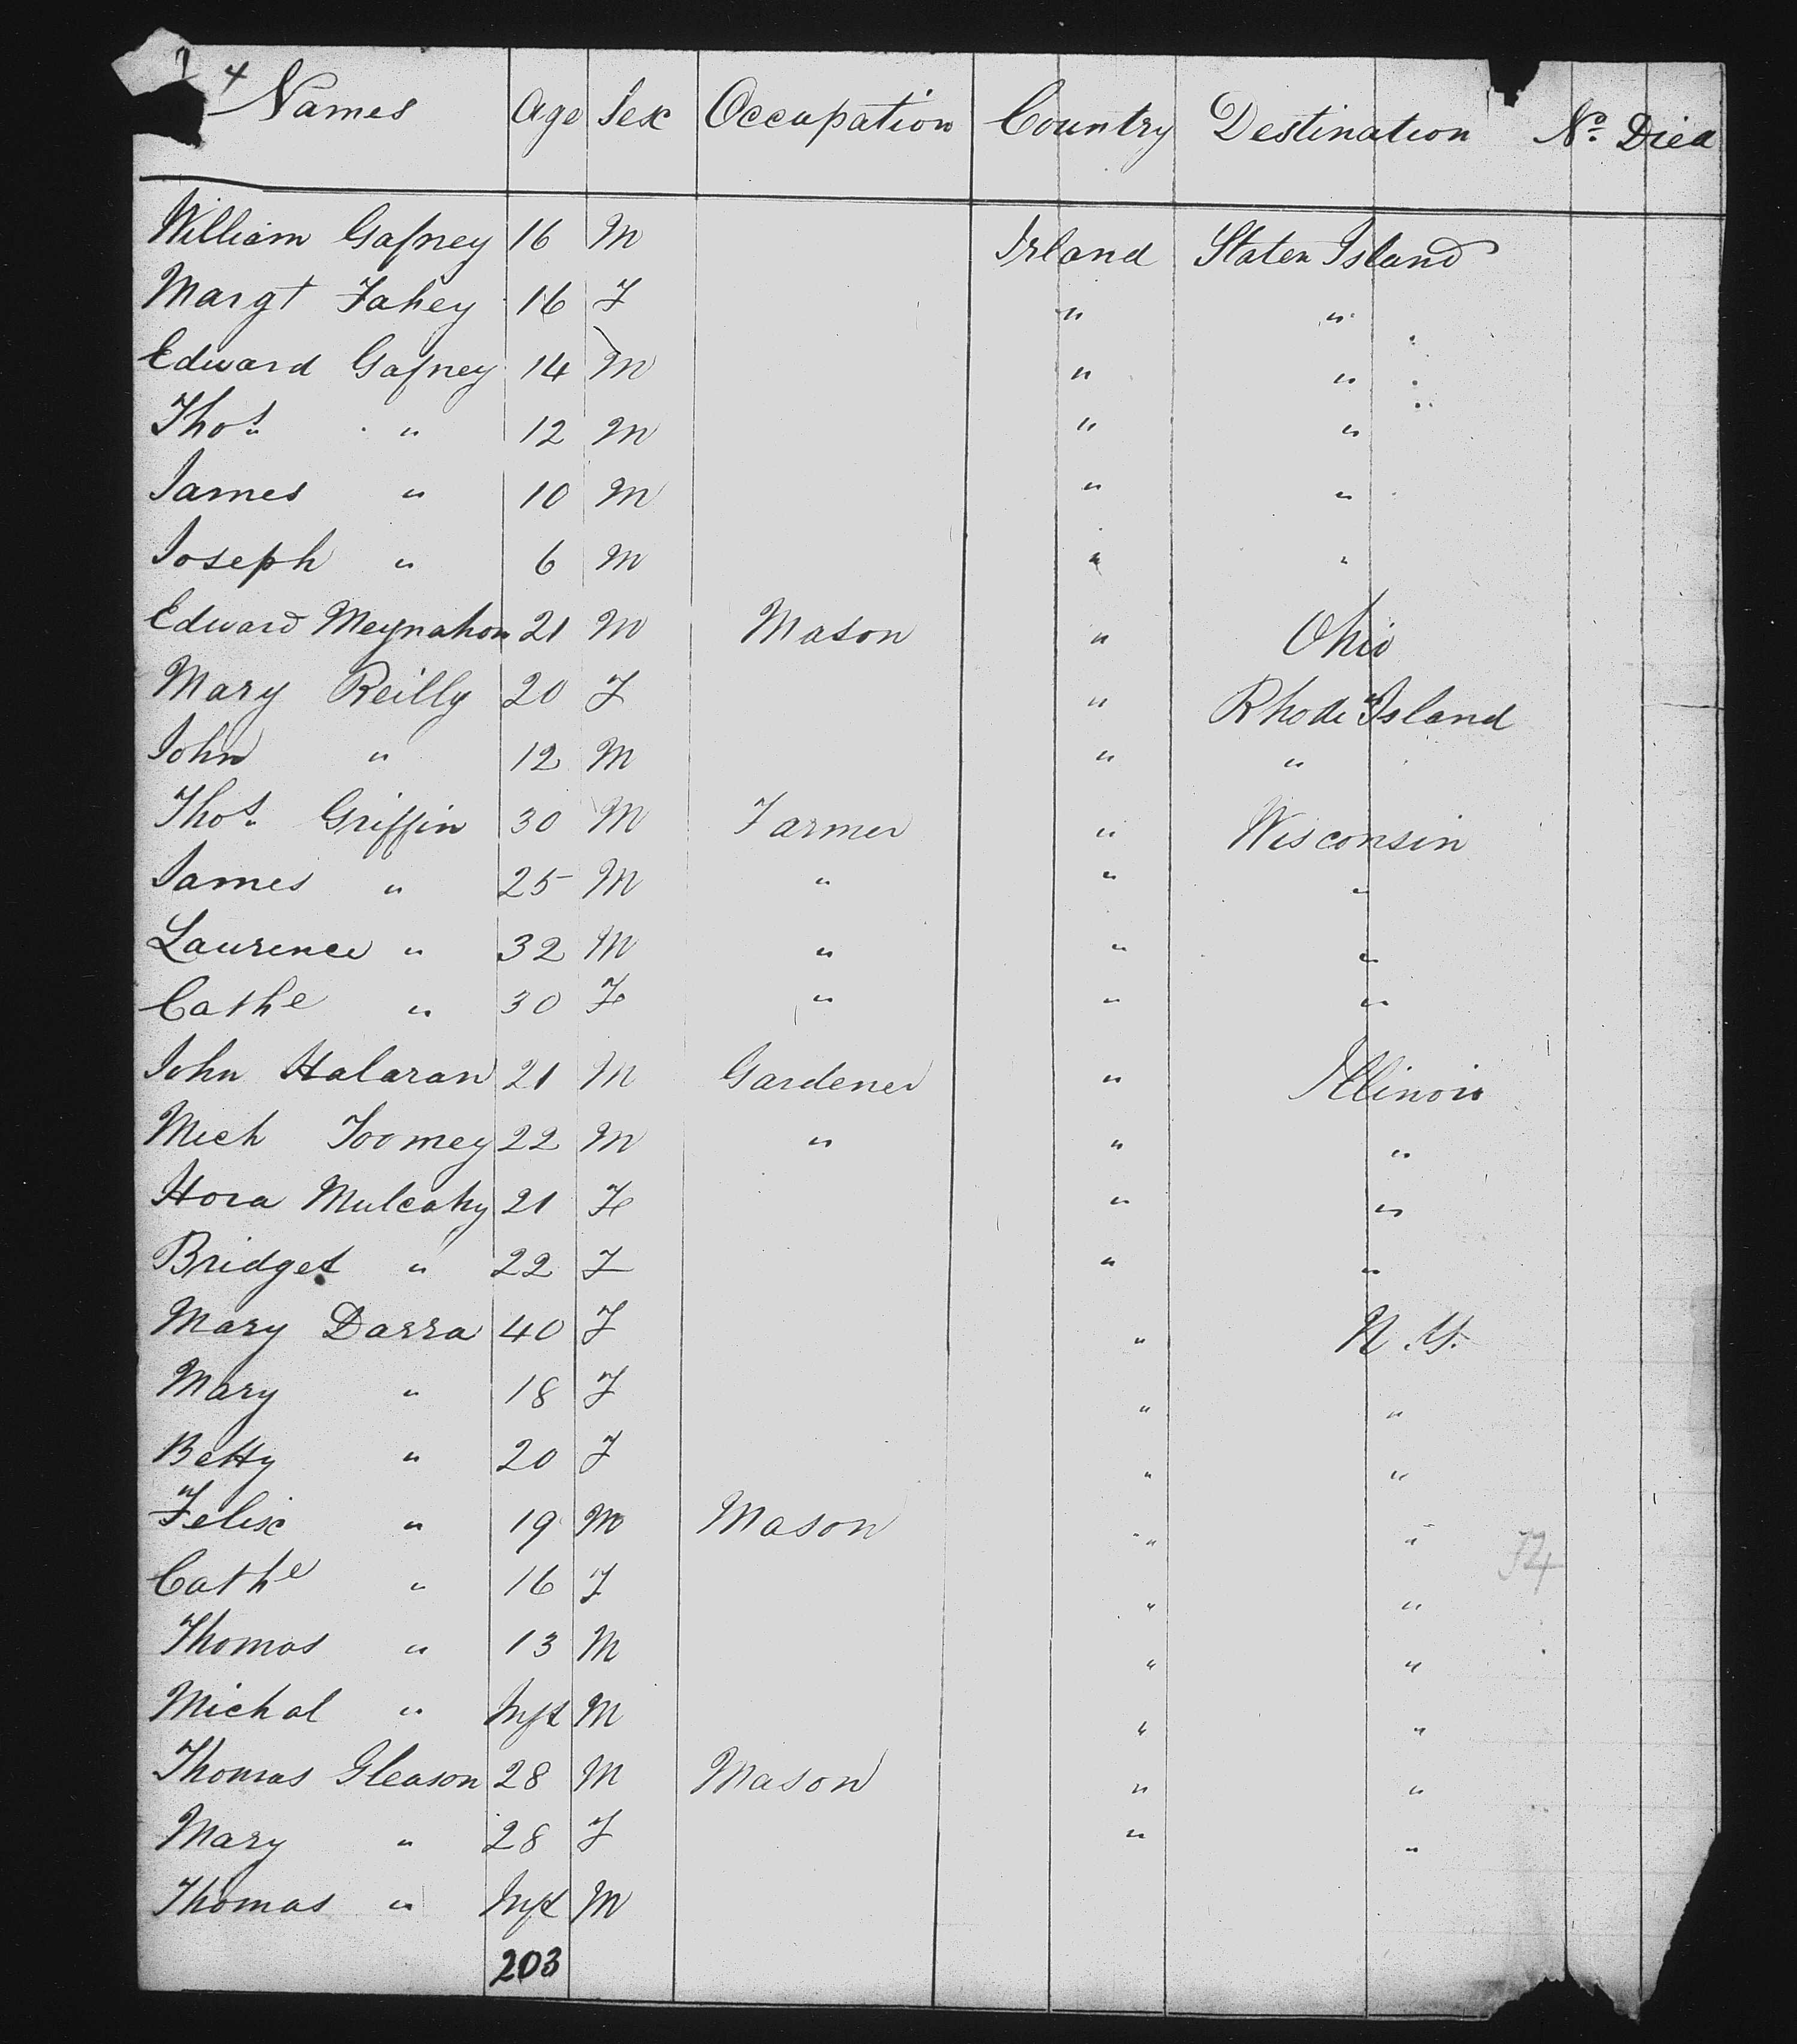 4 Names Age Sex Occupation Country Destination No. Died
William Gafney 16 M Irland Staten Island
Margt Fahey 16 F " "
Edward Gafney 14 M " "
Thos. " 12 M " "
James " 10 M " "
Joseph " 6 M " "
Edward Meynahon 21 M Mason " Ohio
Mary Reilly 20 F " Rhode Island
John " 12 M " "
Thos. Griffin 30 M Farmer " Wisconsin
James " 25 M " " "
Laurence " 32 M " " "
Cathe " 30 F " " "
John Halaran 21 M Gardener " Illinois
Mich Toomey 22 M " " "
Hora Mulcahy 21 F " "
Bridget " 22 F " "
Mary Darra 40 F " N.Y.
Mary " 18 F " "
Betty " 20 F " "
Felix " 19 M Mason " "
Cathe " 16 F " "
Thomas " 13 M " "
Michal " Inft M " "
Thomas Gleason 28 M Mason " "
Mary " 28 F " "
Thomas " Inft M
203